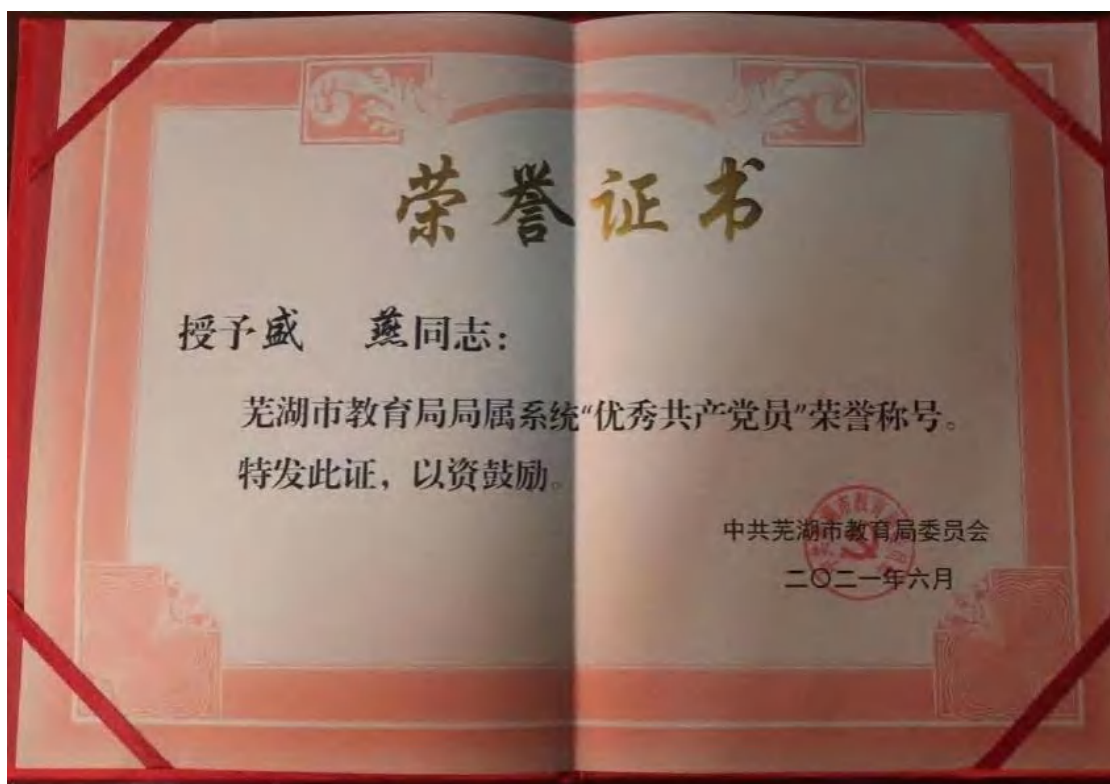 荣誉证书
授予盛 燕同志：
芜湖市教育局局属系统“优秀共产党员”荣誉称号。
特发此证，以资鼓励。
中共芜湖市教育局委员会
二〇二一年六月